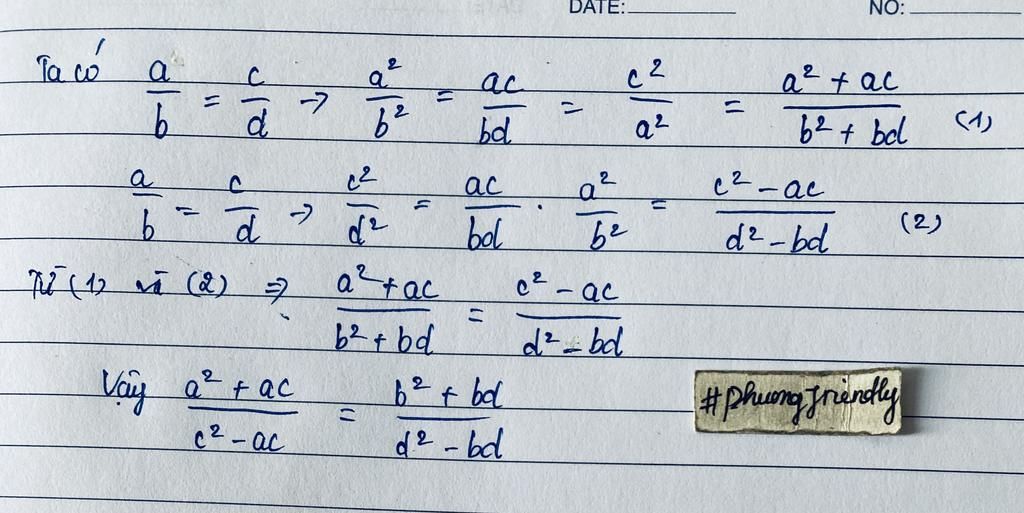 DATE: NO:
Ta có a/b = c/d → a²/b² = ac/bd = c²/a² = a² + ac/b² + bd (1)
a/b = c/d → c²/d² = ac/bd . a²/b² = c² - ac/d² - bd (2)
Từ (1) và (2) ⇒ a² + ac/b² + bd = c² - ac/d² - bd
Vậy a² + ac/c² - ac = b² + bd/d² - bd
#phuongfriendly